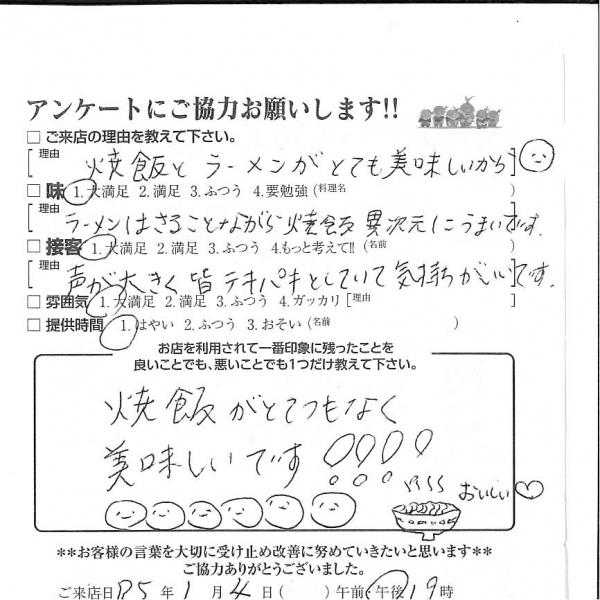 アンケートにご協力お願いします!!
□ ご来店の理由を教えて下さい。
[理由 焼飯とラーメンがとても美味しいから]
□ 味 1.大満足 2.満足 3.ふつう 4.要勉強 (料理名 )
[理由 ラーメンはさることながら焼飯異次元にうまいです.]
□ 接客 1.大満足 2.満足 3.ふつう 4.もっと考えて!! (名前 )
[理由 声が大きく皆テキパキとしていて気持ちがいいです.]
□ 雰囲気 1.大満足 2.満足 3.ふつう 4.ガッカリ [理由 ]
□ 提供時間 1.はやい 2.ふつう 3.おそい (名前 )
お店を利用されて一番印象に残ったことを
良いことでも、悪いことでも1つだけ教えて下さい。
焼飯がとてつもなく
美味しいです!!!!
おいしい♡
**お客様の言葉を大切に受け止め改善に努めていきたいと思います**
ご協力ありがとうございました。
ご来店日 R5年 1月 4日 ( ) 午前・午後 19時